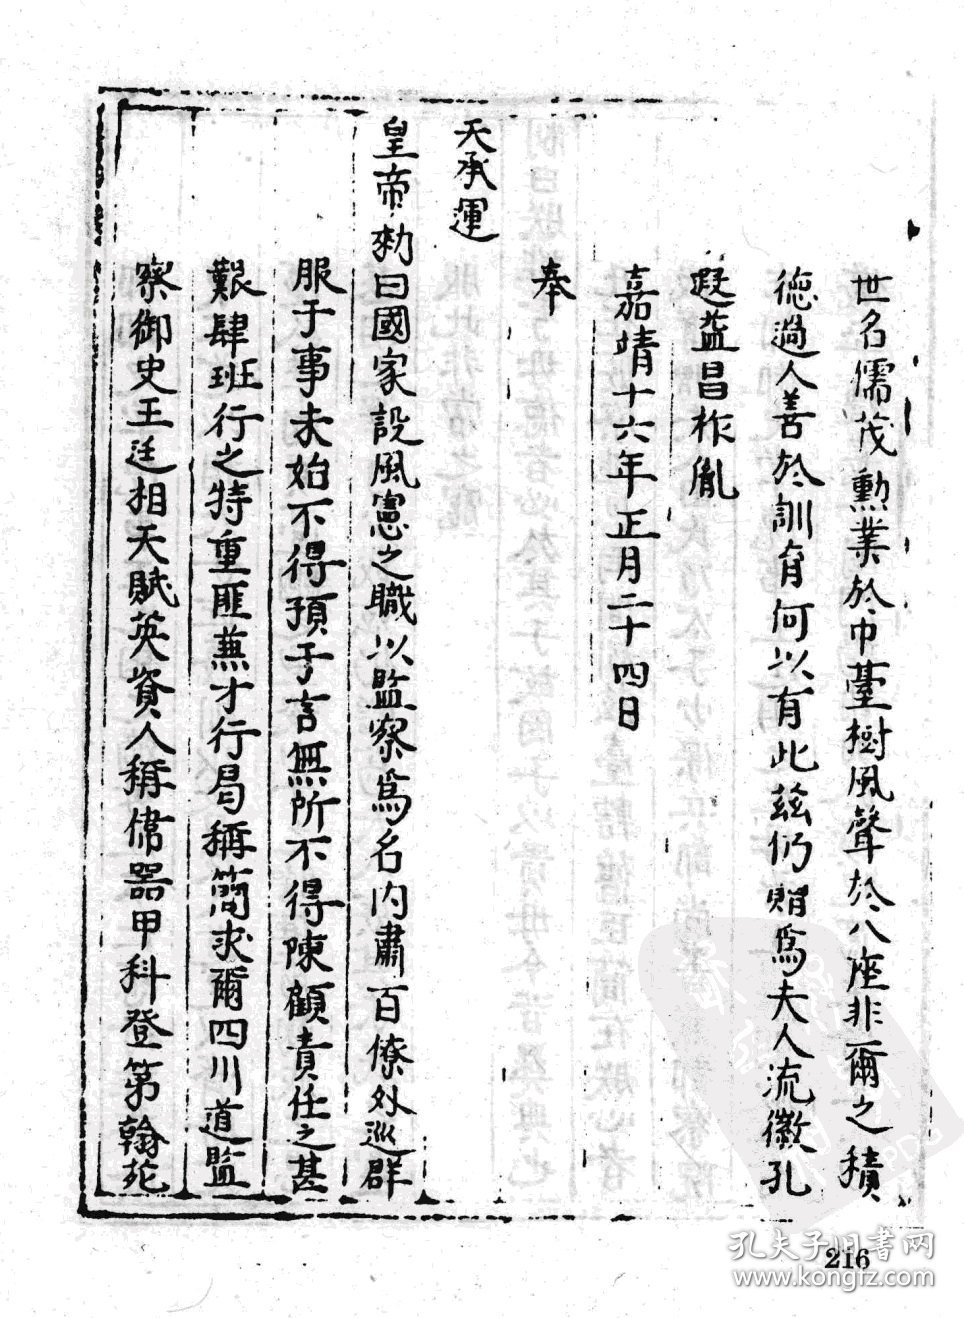 世名儒茂勳業於巾臺樹風聲於八座非爾之積
德過人善於訓育何以有此茲仍贈爲夫人流徽孔
遐益昌柞胤
嘉靖十六年正月二十四日
奉
天承運
皇帝勑曰國家設風憲之職以監察爲名內肅百僚外巡群
服于事未始不得預于言無所不得陳顧責任之甚
艱肆班行之特重匪蕪才行曷稱簡求爾四川道監
察御史王廷相天賦英資人稱偉器甲科登第翰苑
孔夫子旧書网
www.kongfz.com
216